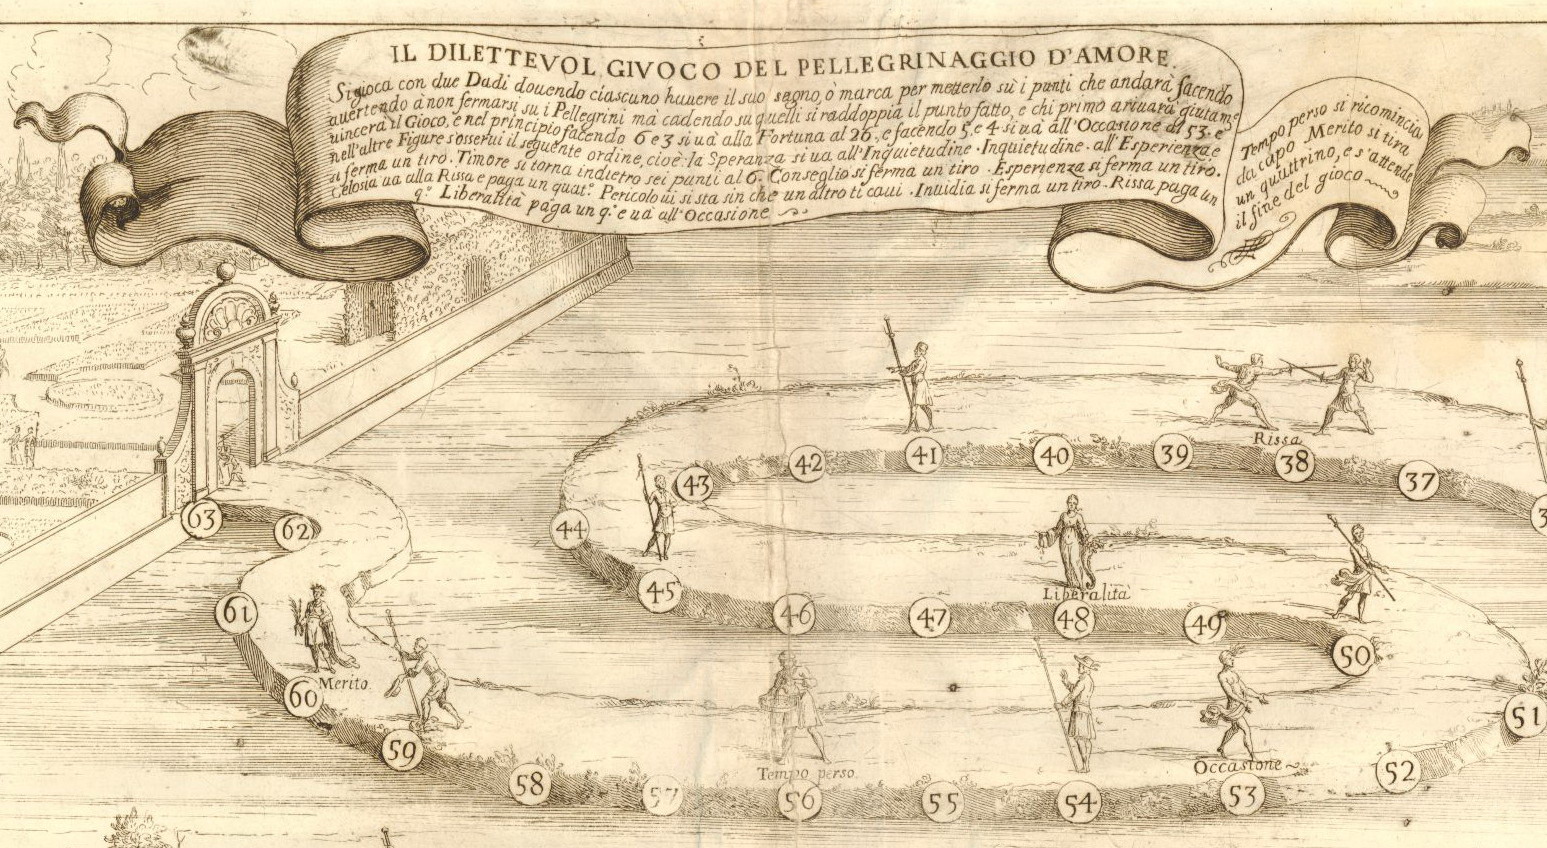 IL DILETTEVOL GIVOCO DEL PELLEGRINAGGIO D'AMORE.
Si gioca con due Dadi douendo ciascuno hauere il suo segno, ò marca per metterlo sù i punti che andarà facendo
auertendo à non fermarsi su i Pellegrini ma cadendo su quelli si raddoppia il punto fatto, e chi primo ariuarà giutam.
uincerà il Gioco, e nel principio facendo 6 e 3 si uà alla Fortuna al 26. e facendo 5 e 4 si uà all'Occasione al 53. e
nell'altre Figure s'osserui il seguente ordine, cioè: la Speranza si ua all'Inquietudine. Inquietudine. all'Esperienza e
si ferma un tiro. Timore si torna indietro sei punti al 6. Conseglio si ferma un tiro. Esperienza si ferma un tiro.
Gelosia ua alla Rissa e paga un quat.º Pericolo ui si sta sin che un altro ti caui. Inuidia si ferma un tiro. Rissa paga un
q.º Liberalità paga un q.º e uà all'Occasione
Tempo perso si ricomincia
da capo Merito si tira
un quattrino, e s'attende
il fine del gioco
Rissa
43
42
41
40
39
38
37
3
44
45
46
47
Liberalità
48
49
50
63
62
61
60
Merito.
59
58
57
Tempo perso.
56
55
54
Occasione
53
52
51